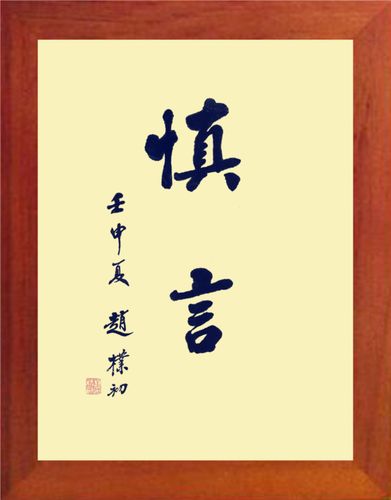 慎言
壬申夏 趙樸初